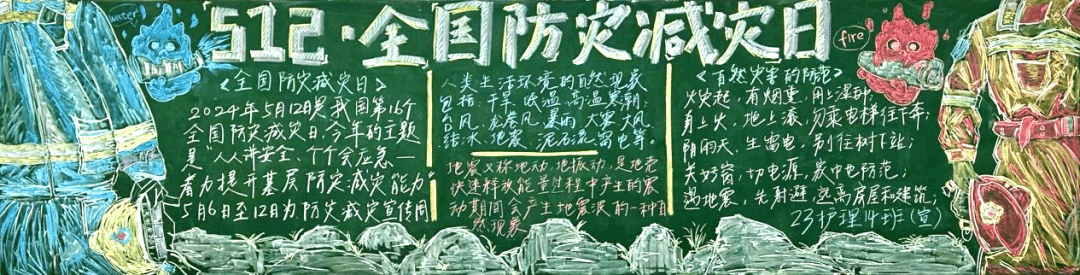 water
512·全国防灾减灾日
fire
《全国防灾减灾日》
2024年5月12日是我国第16个
全国防灾减灾日,今年的主题
是"人人讲安全、个个会应急—
着力提升基层防灾减灾能力"
5月6日至12日为防灾减灾宣传周
人类生活环境的自然现象
包括:干旱、低温、高温、寒潮、
台风、龙卷风、暴雨、大雾、大风、
结冰、地震、泥石流、雷电等.
地震又称地动,地振动,是地壳
快速释放能量过程中产生的震
动期间会产生地震波的一种自
然现象
《自然灾害的防范》
火灾起,有烟熏,用上湿
身上火,地上滚,勿乘电梯往下奔;
阴雨天,生雷电,别往树下站;
关好窗,切电源,家中也防范;
遇地震,先躲避,远离房屋和建筑;
23护理4班(宣)